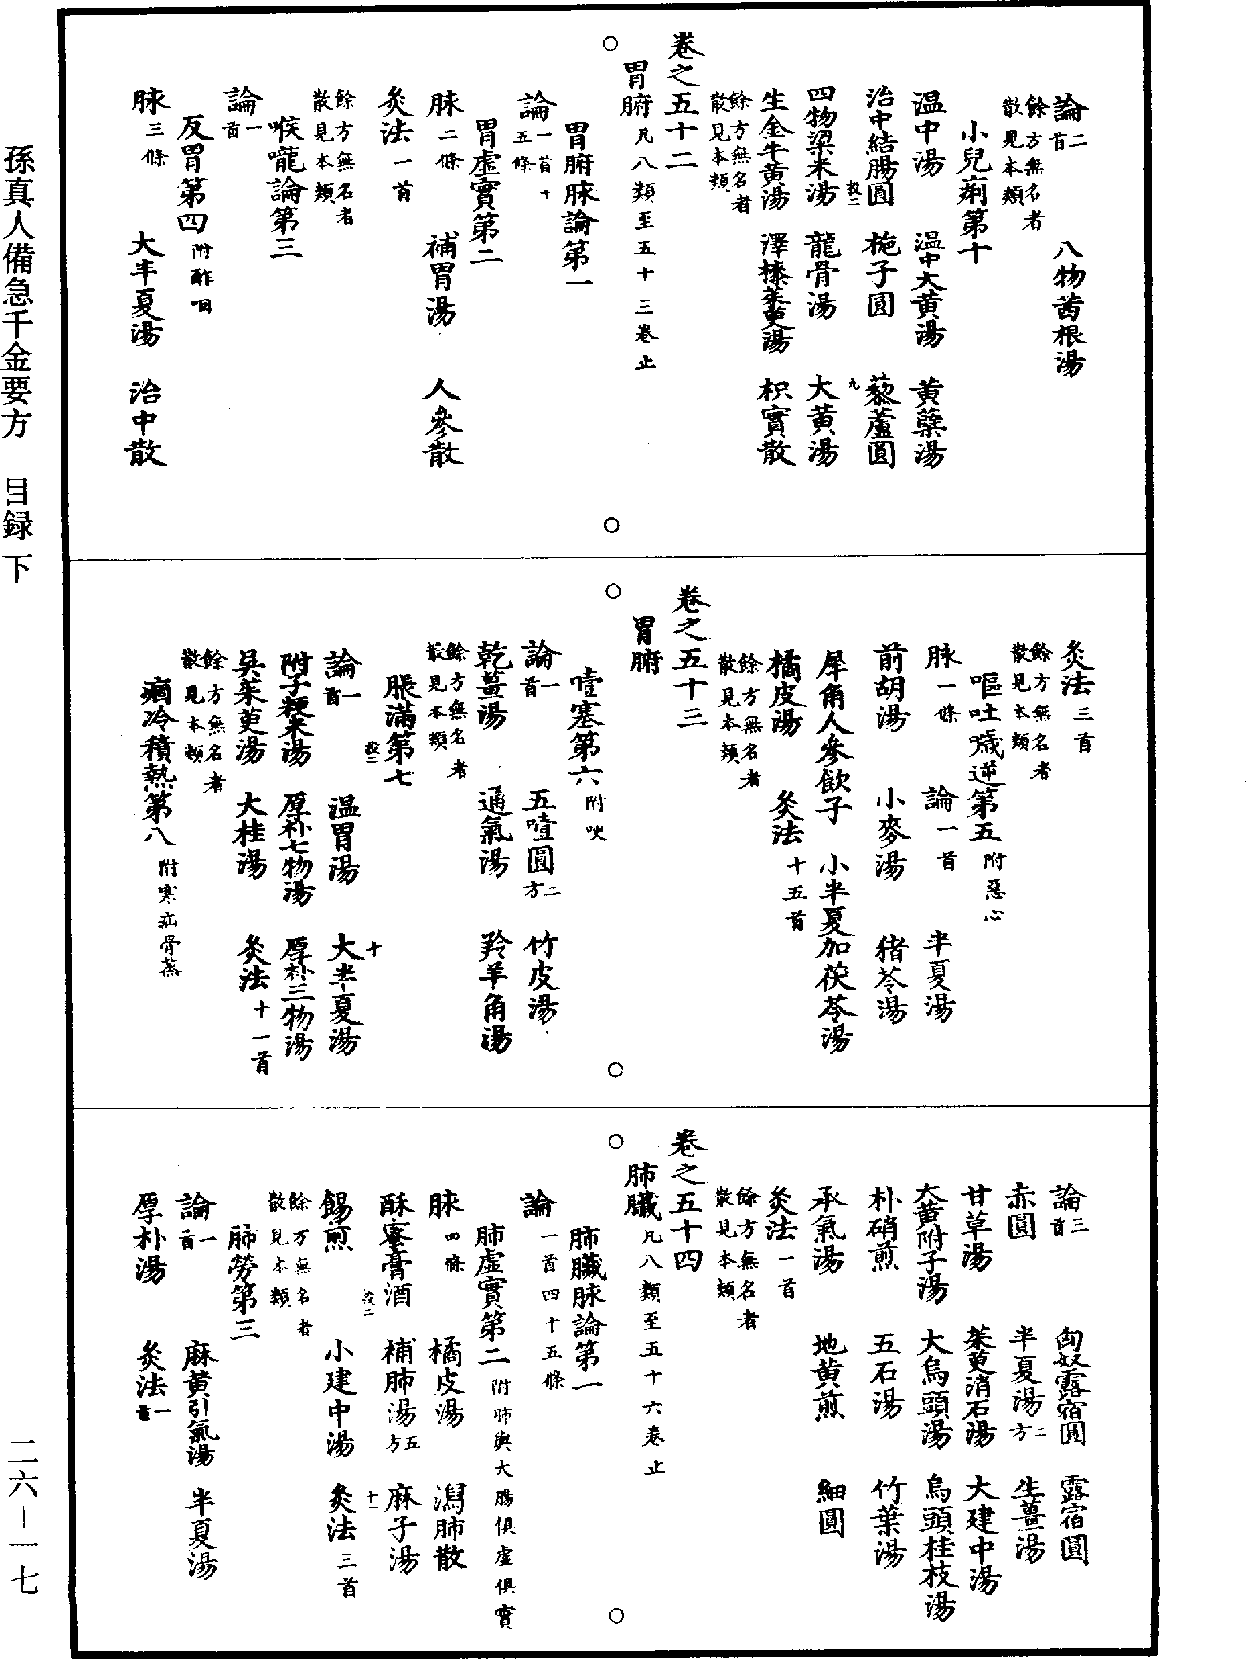 孫真人備急千金要方　目録下
論二首　八物茜根湯
餘方無名者散見本類
小兒痢第十
温中湯　温中大黄湯　黄蘗湯
治中結腸圓　梔子圓　藜蘆圓
四物梁米湯　龍骨湯　大黄湯
生金牛黄湯　澤漆茱萸湯　枳實散
餘方無名者散見本類
卷之五十二
胃腑凡八類至五十三卷止
胃腑脉論第一
論一首十五條
胃虚實第二
脉二條　補胃湯　人參散
灸法一首
餘方無名者散見本類
喉嚨論第三
論一首
反胃第四附酢咽
脉三條　大半夏湯　治中散
灸法三首
餘方無名者散見本類
嘔吐噦逆第五附惡心
脉一條　論一首　半夏湯
前胡湯　小麥湯　猪苓湯
犀角人參飲子　小半夏加茯苓湯
橘皮湯　灸法十五首
餘方無名者散見本類
卷之五十三
胃腑
噎塞第六附吹
論一首　五噎圓二方　竹皮湯
乾薑湯　通氣湯　羚羊角湯
餘方無名者散見本類
脹滿第七
論一首　温胃湯　大半夏湯
附子粳米湯　厚朴七物湯　厚朴三物湯
吳茱萸湯　大桂湯　灸法十一首
餘方無名者散見本類
痼冷積熱第八附寒疝骨蒸
論三首　匈奴露宿圓　露宿圓
赤圓　半夏湯二方　生薑湯
甘草湯　茱萸消石湯　大建中湯
大黄附子湯　大烏頭湯　烏頭桂枝湯
朴硝煎　五石湯　竹葉湯
承氣湯　地黄煎　細圓
灸法一首
餘方無名者散見本類
卷之五十四
肺臟凡八類至五十六卷止
肺臟脉論第一
論一首四十五條
肺虚實第二附肺與大腸俱虚俱實
脉四條　橘皮湯　瀉肺散
酥蜜膏酒　補肺湯五方　麻子湯
餳煎　小建中湯　灸法三首
餘方無名者散見本類
肺勞第三
論一首　麻黄引氣湯　半夏湯
厚朴湯　灸法一首
二六－一七